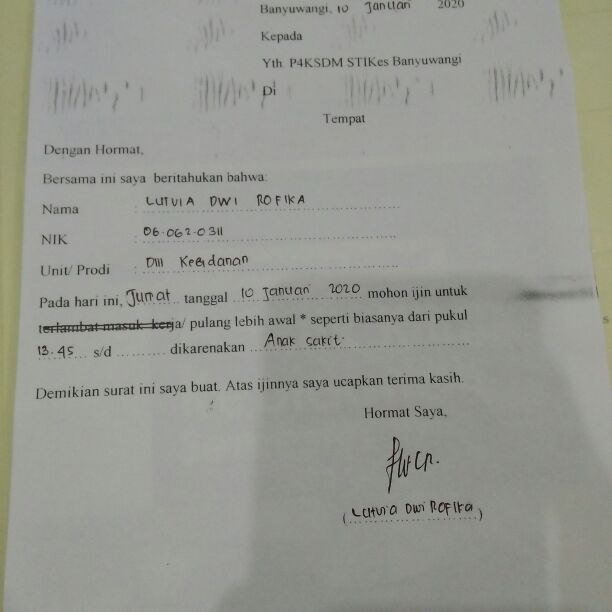 Banyuwangi, 10 Januari 2020
Kepada
Yth P4KSDM STIKes Banyuwangi
Di
Tempat
Dengan Hormat,
Bersama ini saya beritahukan bahwa:
Nama : LUTVIA DWI ROFIKA
NIK : 06.062.0311
Unit/ Prodi : DIII Kebidanan
Pada hari ini, Jum'at tanggal 10 Januari 2020 mohon ijin untuk
terlambat masuk kerja/ pulang lebih awal * seperti biasanya dari pukul
13.45 s/d ........... dikarenakan Anak sakit.
Demikian surat ini saya buat. Atas ijinnya saya ucapkan terima kasih.
Hormat Saya,
(LUTVIA DWI ROFIKA)